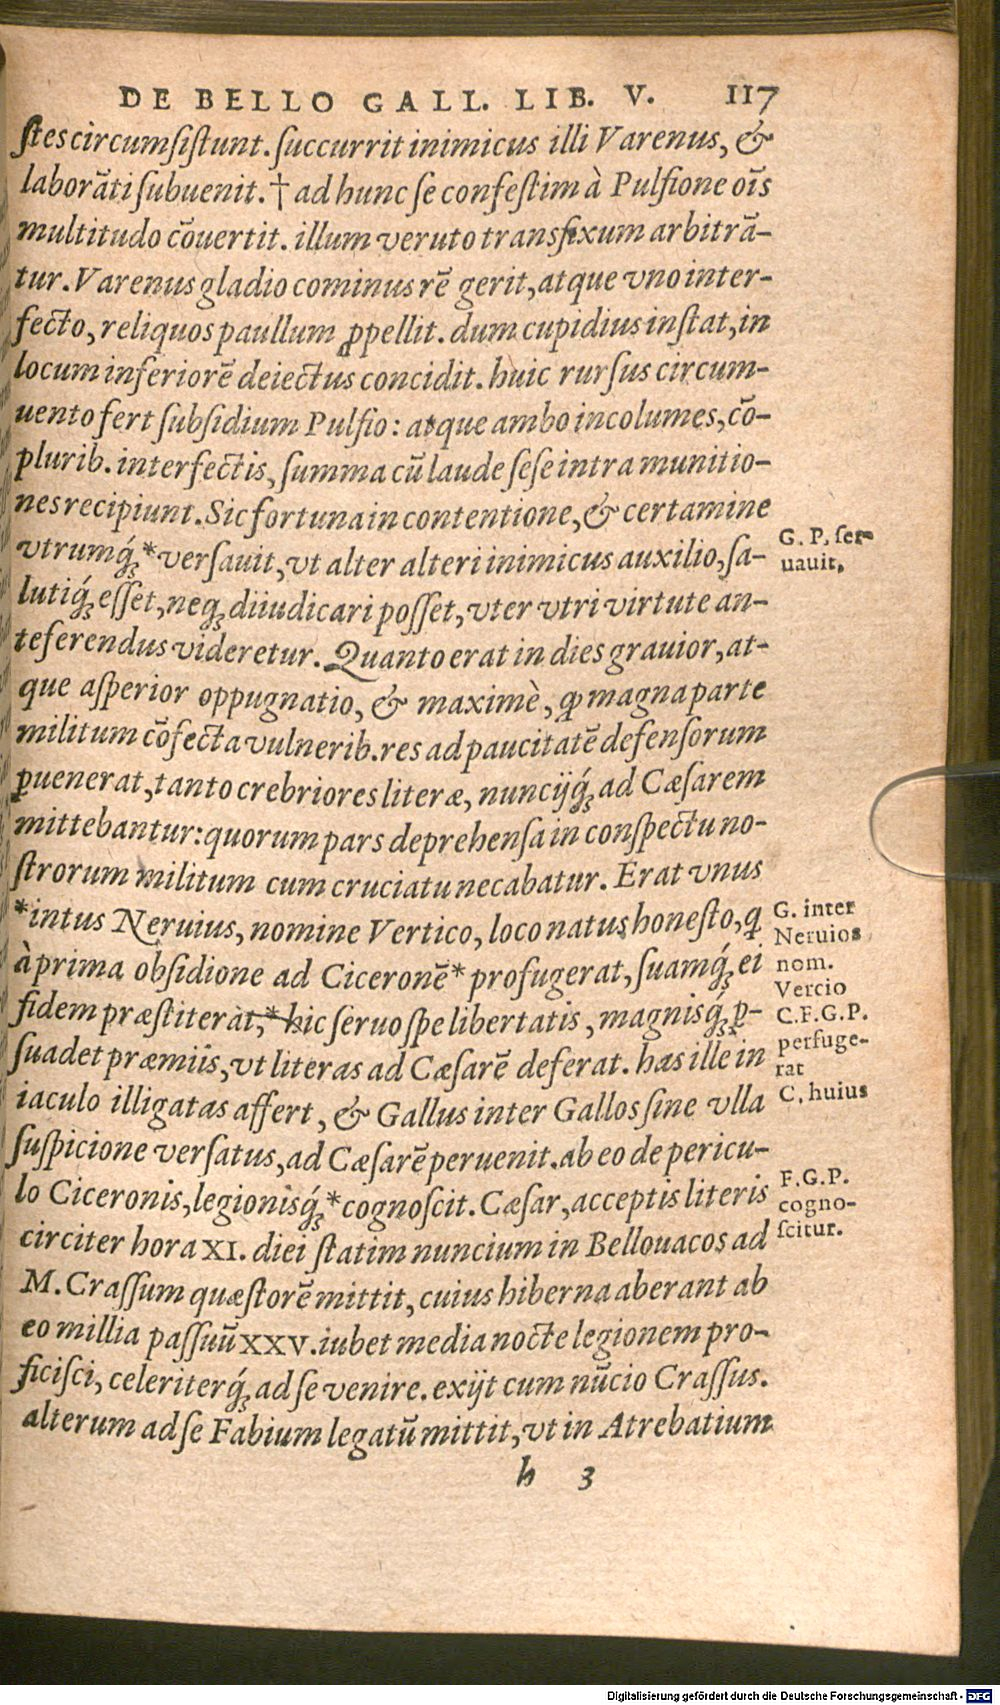 DE BELLO GALL. LIB. V. 117
ſtes circumſiſtunt. ſuccurrit inimicus illi Varenus, &
laborāti ſubuenit. † ad hunc ſe confeſtim à Pulfione oīs
multitudo cōuertit. illum veruto transfixum arbitrā-
tur. Varenus gladio cominus rē gerit, atque vno inter-
fecto, reliquos paullum ꝓpellit. dum cupidius inſtat, in
locum inferiorē deiectus concidit. huic rurſus circum-
uento fert ſubſidium Pulfio: atque ambo incolumes, cō-
plurib. interfectis, ſumma cū laude ſeſe intra munitio-
nes recipiunt. Sic fortuna in contentione, & certamine
vtrumq́ꝫ * verſauit, vt alter alteri inimicus auxilio, ſa-
lutiq́ꝫ eſſet, neqꝫ diiudicari poſſet, vter vtri virtute an-
teferendus videretur. Quanto erat in dies grauior, at-
que aſperior oppugnatio, & maximè, ꝙ magna parte
militum cōfecta vulnerib. res ad paucitatē defenſorum
ꝑuenerat, tanto crebriores literæ, nuncijq́ꝫ ad Cæſarem
mittebantur: quorum pars deprehenſa in conſpectu no-
ſtrorum militum cum cruciatu necabatur. Erat vnus
*intus Neruius, nomine Vertico, loco natus honeſto, ꝗ
à prima obſidione ad Ciceronē * profugerat, ſuamq́ꝫ ei
fidem præſtiterat, * hic ſeruo ſpe libertatis, magnisq́ꝫ ꝑ-
ſuadet præmiis, vt literas ad Cæſarē deferat. has ille in
iaculo illigatas affert, & Gallus inter Gallos ſine vlla
ſuſpicione verſatus, ad Cæſarē peruenit. ab eo de pericu-
lo Ciceronis, legionisq́ꝫ * cognoſcit. Cæſar, acceptis literis
circiter hora XI. diei ſtatim nuncium in Bellouacos ad
M. Craſſum quæſtorē mittit, cuius hiberna aberant ab
eo millia paſſuū XXV. iubet media nocte legionem pro-
ficiſci, celeriterq́ꝫ ad ſe venire. exijt cum nūcio Craſſus.
alterum ad ſe Fabium legatū mittit, vt in Atrebatium
h 3
G. P. ſer-
uauit,
G. inter
Neruios
nom.
Vercio
C.F.G.P.
perfuge-
rat
C. huius
F.G.P.
cogno-
ſcitur.
Digitalisierung gefördert durch die Deutsche Forschungsgemeinschaft - DFG